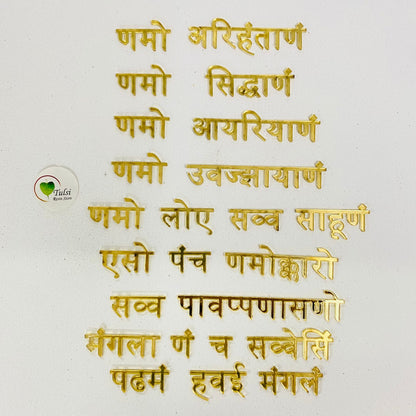 णमो अरिहंताणं
णमो सिद्धाणं
णमो आयरियाणं
णमो उवज्झायाणं
Tulsi
Resin Store
णमो लोए सव्व साहूणं
एसो पंच णमोक्कारो
सव्व पावप्पणासणो
मंगला णं च सव्वेसिं
पढमं हवई मंगलं